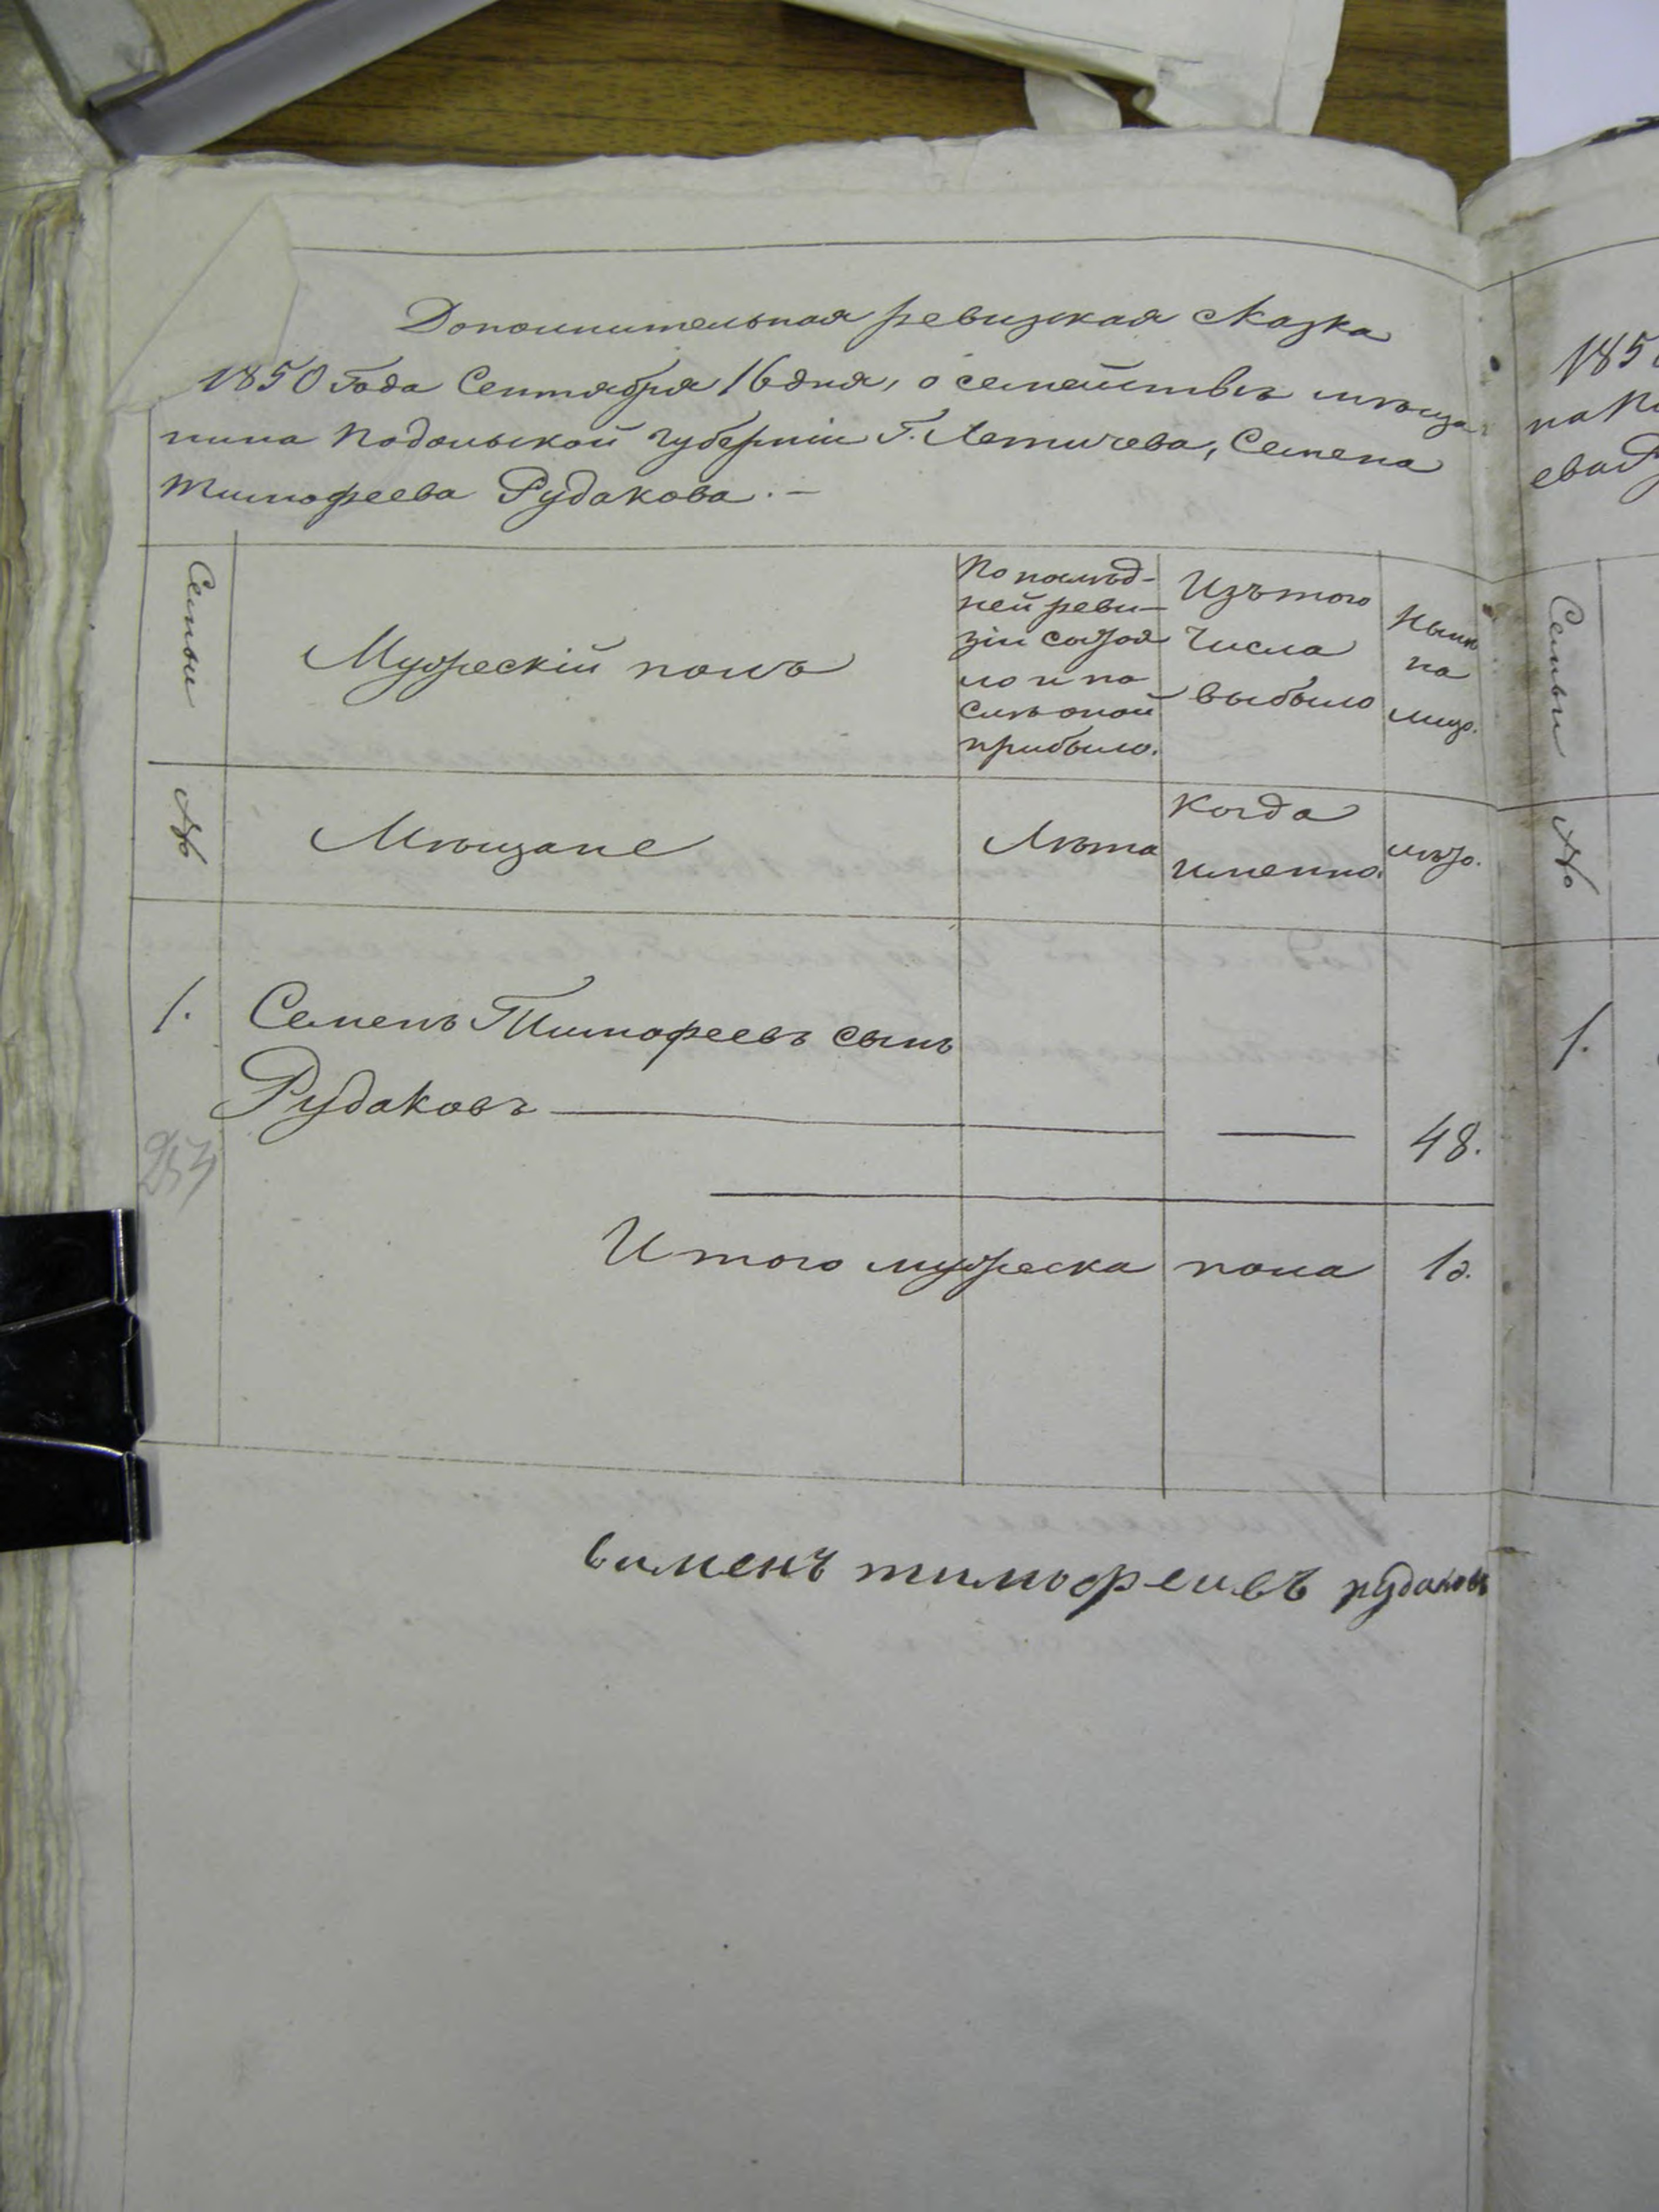 Дополнительная ревизская сказка
1850 Года Сентября 16 дня, о семействѣ мѣща
нина Подольской губерніи Г. Летичева, Семена
Тимофеева Рудакова. —
Семьи
Мужескій полъ
По послѣд-
ней реви-
зіи состоя
ло и по
слѣ оной
прибыло.
Изъ того
числа
выбыло
Нынѣ
на
лицо.
№
Мѣщане
Лѣта
Когда
именно.
лѣта.
1. Семенъ Тимофеевъ сынъ
Рудаковъ — — 48.
Итого мужеска пола 1.
сименъ тимофеивъ рудаковъ
185
на По
ева
Семьи
№
1.